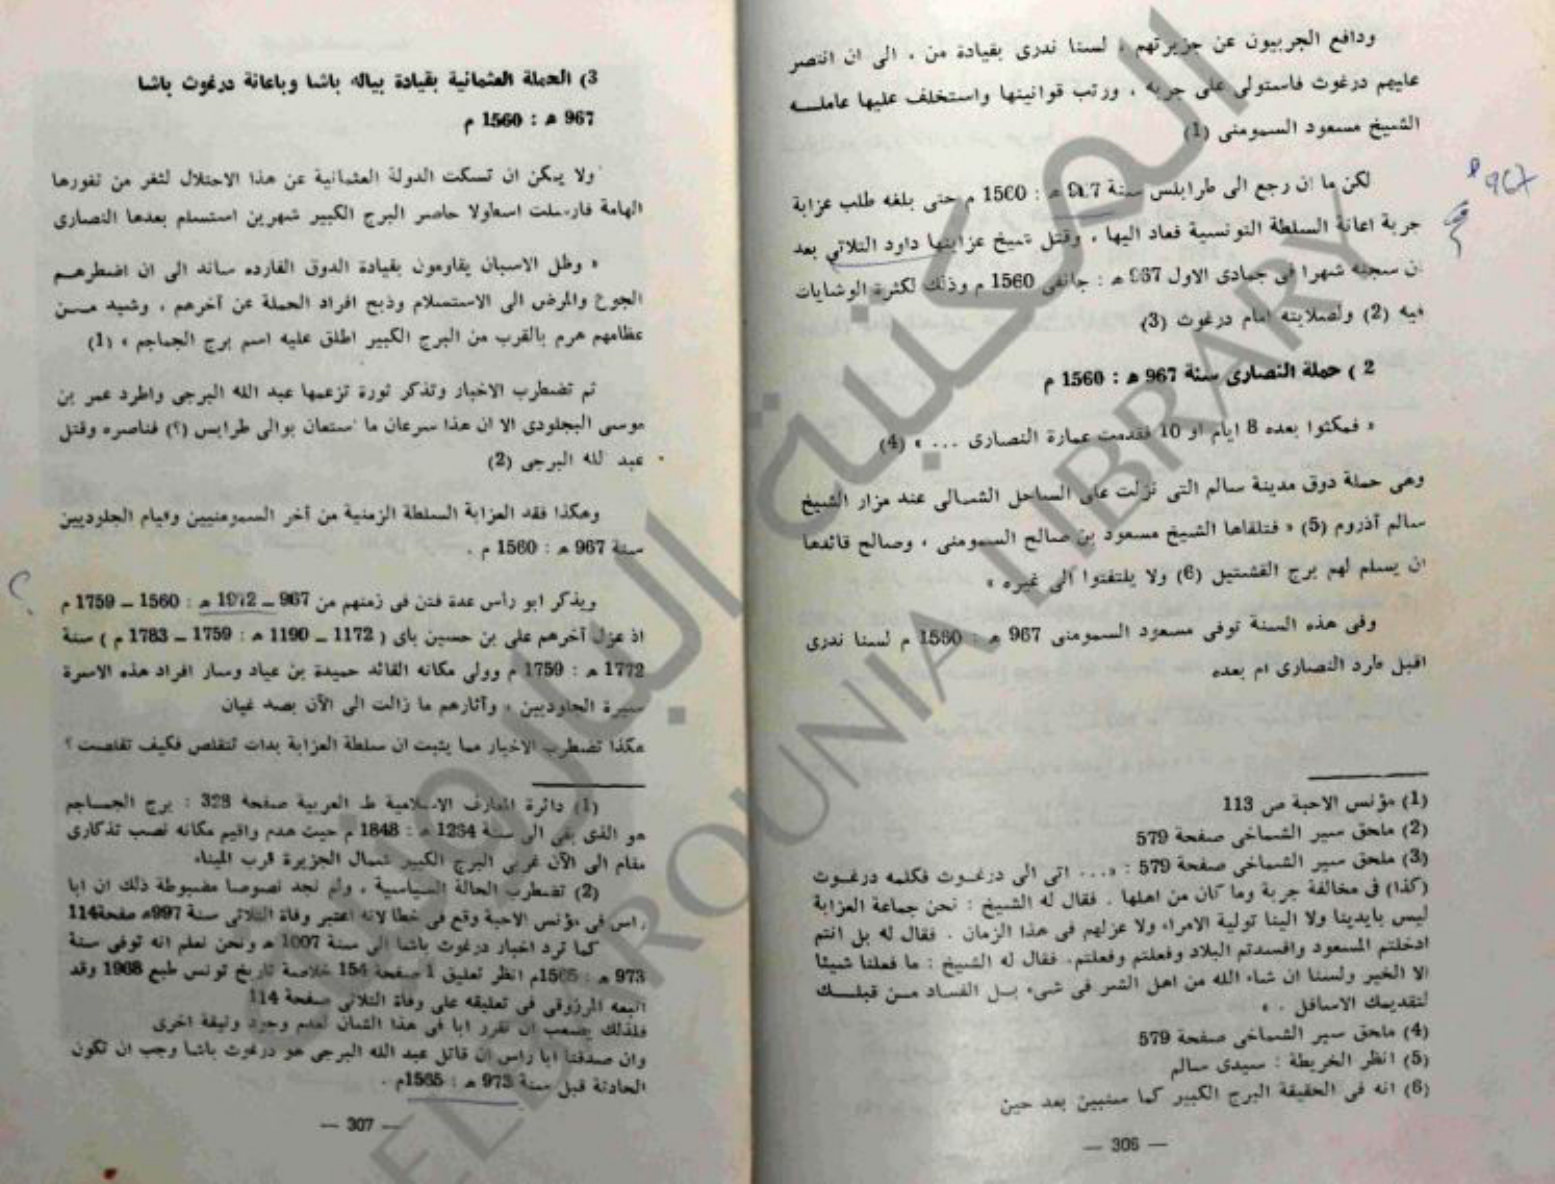 ودافع الجربيون عن جزيرتهم ، لسنا ندرى بقيادة من ، الى ان انتصر
عليهم درغوث فاستولى على جربة ، ورتب قوانينها واستخلف عليها عاملـــه
الشيخ مسعود السمومنى (1)
لكن ما ان رجع الى طرابلس سنة 967 ه : 1560 م حتى بلغه طلب عزابة
جربة اعانة السلطة التونسية فعاد اليها ، وقتل شيخ عزابتها داود التلاتي بعد
ان سجنه شهرا فى جمادى الاول 967 ه : جانفى 1560 م وذلك لكثرة الوشايات
فيه (2) ولصلابته امام درغوث (3)
967 ه
2 ) حملة النصارى سنة 967 ه : 1560 م
« فمكثوا بعده 8 ايام او 10 فقدمت عمارة النصارى ... » (4)
وهى حملة دوق مدينة سالم التى نزلت على الساحل الشمالى عند مزار الشيخ
سالم آذروم (5) « فتلقاها الشيخ مسعود بن صالح السمومنى ، وصالح قائدها
ان يسلم لهم برج القشتيل (6) ولا يلتفتوا الى غيره »
وفى هذه السنة توفى مسعود السمومنى 967 ه : 1560 م لسنا ندرى
اقبل طرد النصارى ام بعده
(1) مؤنس الاحبة ص 113
(2) ملحق سير الشماخى صفحة 579
(3) ملحق سير الشماخى صفحة 579 : «... اتى الى درغـوث فكلمه درغـوث
(كذا) فى مخالفة جربة وما كان من اهلها . فقال له الشيخ : نحن جماعة العزابة
ليس بايدينا ولا الينا تولية الامراء ولا عزلهم فى هذا الزمان . فقال له بل انتم
ادخلتم المسعود وافسدتم البلاد وفعلتم وفعلتم. فقال له الشيخ : ما فعلنا شيئا
الا الخير ولسنا ان شاء الله من اهل الشر فى شىء بـل الفساد مـن قبلـــك
لتقديمك الاسافل . »
(4) ملحق سير الشماخى صفحة 579
(5) انظر الخريطة : سيدى سالم
(6) انه فى الحقيقة البرج الكبير كما سنبين بعد حين
— 306 —
3) الحملة العثمانية بقيادة بياله باشا وباعانة درغوث باشا
967 ه : 1560 م
ولا يمكن ان تسكت الدولة العثمانية عن هذا الاحتلال لثغر من ثغورها
الهامة فارسلت اسطولا حاصر البرج الكبير شهرين استسلم بعدها النصارى
« وظل الاسبان يقاومون بقيادة الدوق الفارده ساند الى ان اضطرهـــم
الجوع والمرض الى الاستسلام وذبح افراد الحملة عن آخرهم ، وشيد مـــن
عظامهم هرم بالقرب من البرج الكبير اطلق عليه اسم برج الجماجم » (1)
ثم تضطرب الاخبار وتذكر ثورة تزعمها عبد الله البرجى واطرد عمر بن
موسى البجلودى الا ان هذا سرعان ما استعان بوالى طرابس (؟) فناصره وقتل
عبد الله البرجى (2)
وهكذا فقد العزابة السلطة الزمنية من آخر السمومنيين وقيام الجلوديين
سنة 967 ه : 1560 م .
ويذكر ابو رأس عدة فتن فى زمنهم من 967 ــ 1972 ه : 1560 ــ 1759 م
اذ عزل آخرهم على بن حسين باى ( 1172 ــ 1190 ه : 1759 ــ 1783 م ) سنة
1772 ه : 1759 م وولى مكانه القائد حميدة بن عياد وسار افراد هذه الاسرة
سيرة الجلوديين ، وآثارهم ما زالت الى الآن بصه غيان
هكذا تضطرب الاخبار مما يثبت ان سلطة العزابة بدات تتقلص فكيف تقلصت ؟
(1) دائرة المعارف الاسلامية ط العربية صفحة 328 : برج الجماجم
هو الذى بقى الى سنة 1264 ه : 1848 م حيث هدم واقيم مكانه نصب تذكارى
مقام الى الآن غربى البرج الكبير شمال الجزيرة قرب الميناء
(2) تضطرب الحالة السياسية ، ولم نجد نصوصا مضبوطة ذلك ان ابا
راس فى مؤنس الاحبة وقع فى خطا لانه اعتبر وفاة التلاتى سنة 997ه صفحة114
كما ترد اخبار درغوث باشا الى سنة 1007 ه ونحن نعلم انه توفى سنة
973 ه : 1565م انظر تعليق 1 صفحة 154 خلاصة تاريخ تونس طبع 1968 وقد
اتبعه المرزوقى فى تعليقه على وفاة التلاتى صفحة 114
فلذلك يصعب ان نقرر ايا فى هذا الشان لعدم وجود وثيقة اخرى
وان صدقنا ابا راس ان قاتل عبد الله البرجى هو درغوث باشا وجب ان تكون
الحادثة قبل سنة 973 ه : 1565م .
— 307 —
المكتبة البارونية
ELBAROUNIA LIBRARY